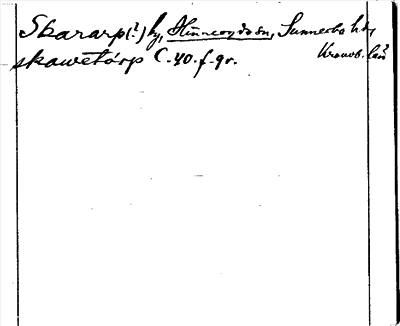 Skararp(?) by, Hinneryds sn, Sunnerbo hd,
Kronob. län
skawetorp C.40.f.9v.